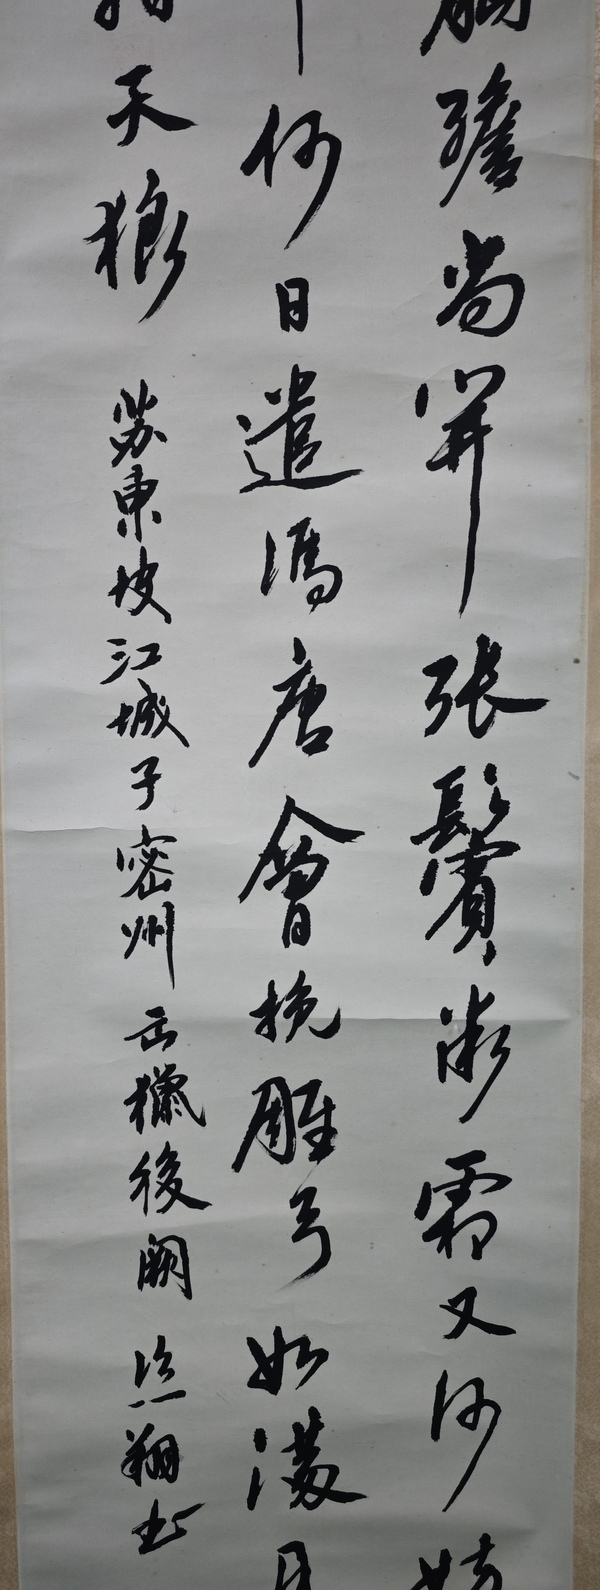 胸膽尚開張鬢微霜又何妨
中何日遣馮唐會挽雕弓如滿月
射天狼 苏東坡江城子密州出獵後闋 翔書